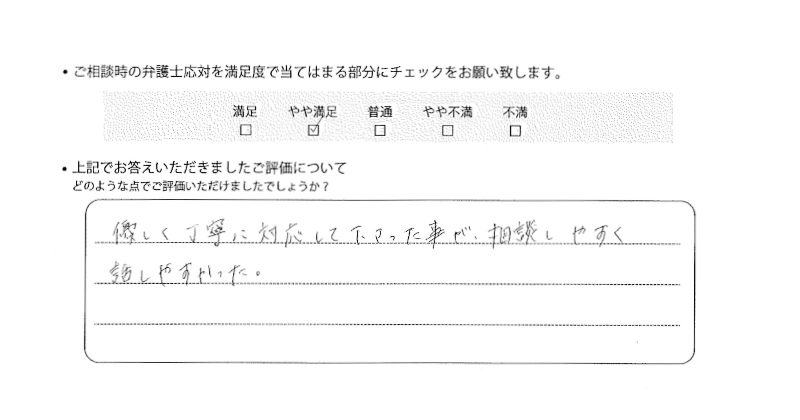 ・ご相談時の弁護士応対を満足度で当てはまる部分にチェックをお願い致します。
満足 やや満足 普通 やや不満 不満
□ ☑ □ □ □
・上記でお答えいただきましたご評価について
どのような点でご評価いただけましたでしょうか？
優しく丁寧に対応して下さった事が、相談しやすく
話しやすかった。